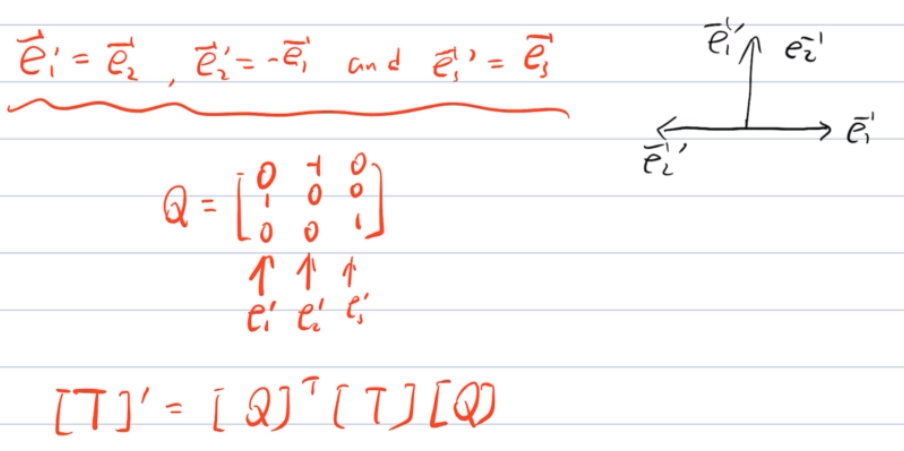 e⃗₁' = e⃗₂ , e⃗₂' = -e⃗₁ and e⃗₃' = e⃗₃
e⃗₁' e⃗₂
e⃗₁
e⃗₂'
Q = [0 -1 0
1 0 0
0 0 1]
↑ ↑ ↑
e₁' e₂' e₃'
[T]' = [Q]ᵀ[T][Q]